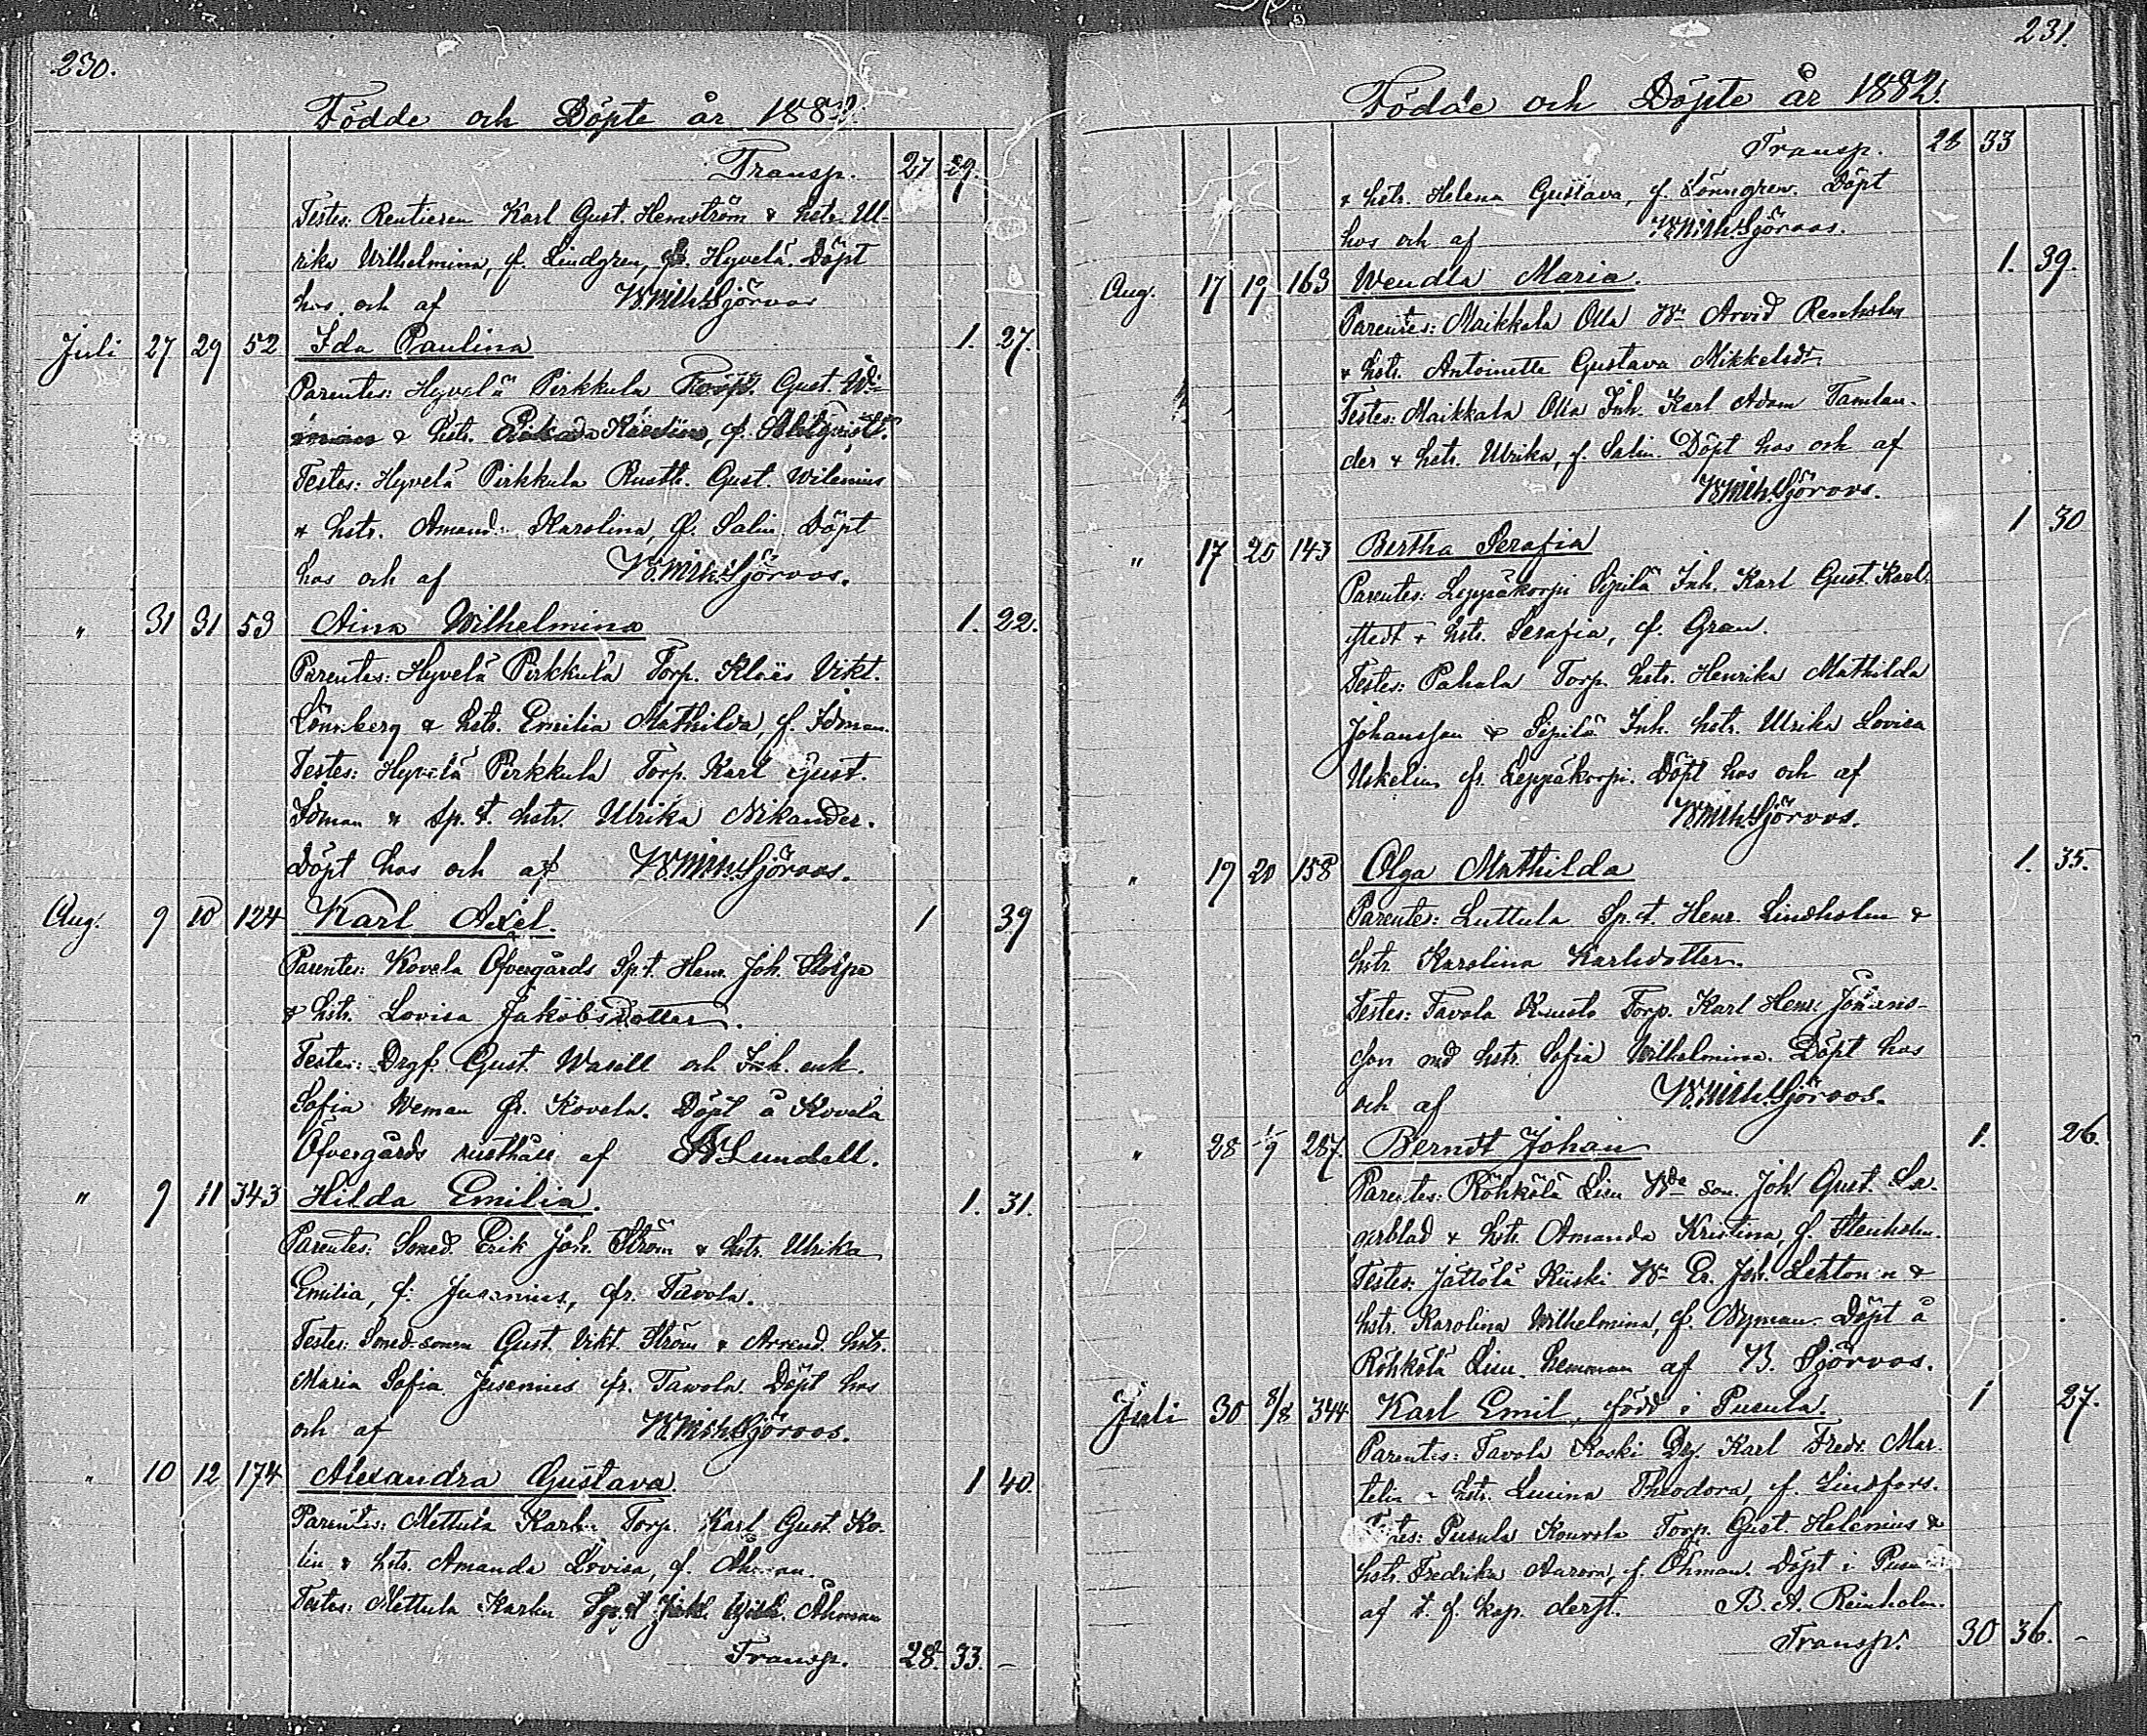 230.
Födde och Döpte år 1882.
Transp. 27 29.
Testes: Rentieren Karl Gust. Hemström & hstr. Ul-
rika Wilhelmina, f. Lindgren, fr. Hyvelä. Döpt
hos och af Sjöroos
Juli 27 29 52 Ida Paulina 1. 27.
Parentes: Hyvelä Pirkkula Gust.
& hstr. f.
Testes: Hyvelä Pirkkula Rusth. Gust. Wilenius
& hstr. Amand. Karolina, f. Salin. Döpt
hos och af Sjöroos.
" 31 31 53 Aina Wilhelmina 1. 22.
Parentes: Hyvelä Pirkkula Torp. Klaes Vikt.
Lönnberg & hstr. Emilia Mathilda, f. Idman.
Testes: Hyvelä Pirkkula Torp. Karl Gust.
Idman & Sp. t. hstr. Ulrika Nikander.
Döpt hos och af Sjöroos.
Aug. 9 10 124 Karl Axel. 1 39
Parentes: Kovela Öfvergårds Sp. t. Henr. Joh. Stolpe
& hstr. Lovisa Jakobsdotter.
Testes: Drgf. Gust. Wasell och Inh. enk.
Sofia Weman fr. Kovela. Döpt å Kovela
Öfvergårds rusthåll af Lundell.
" 9 11 343 Hilda Emilia. 1. 31.
Parentes: Smed. Erik Joh. Ström & hstr. Ulrika
Emilia, f. Jusenius, fr. Tavola.
Testes: Smed-sonen Gust. Vikt. Ström & Arrend. hstr.
Maria Sofia Jusenius fr. Tavola. Döpt hos
och af Sjöroos.
" 10 12 174 Alexandra Gustava. 1 40.
Parentes: Mettula Karhu Torp. Karl Gust. Ko-
lin & hstr. Amanda Lovisa, f. Åhman.
Testes: Mettula Karhu Sp. t. Åhman
Transp. 28. 33. -
231.
Födde och Döpte år 1882.
Transp. 28 33
& hstr. Helena Gustava, f. Lönngren. Döpt
hos och af Sjöroos.
Aug. 17 19 163 Wendla Maria. 1. 39.
Parentes: Maikkala Olla Arvid Renholm
& hstr. Antoinette Gustava Mikkelsdr.
Testes: Maikkala Olla Inh. Karl Adam Tamlan-
der & hstr. Ulrika, f. Salin. Döpt hos och af
Sjöroos.
" 17 20 143 Bertha Serafia 1 30
Parentes: Leppäkorpi Sipilä Inh. Karl Gust. Karl-
stedt & hstr. Serafia, f. Gran.
Testes: Pahala Torp. hstr. Henrika Mathilda
Johansson & Sipilä Inh. hstr. Ulrika Lovisa
Uskelin fr. Leppäkorpi. Döpt hos och af
Sjöroos.
" 19 20 158 Olga Mathilda 1. 35.
Parentes: Luttula Sp. t. Henr. Lindholm &
hstr. Karolina Karlsdotter.
Testes: Tavola Torp. Karl Henr. Johans-
son med hstr. Sofia Wilhelmina. Döpt hos
och af Sjöroos.
" 28 1/9 287. Berndt Johan 1. 26.
Parentes: Röhkölä Liu son. Joh. Gust. La-
gerblad & hstr. Amanda Kristina f. Stenholm.
Testes: Jättölä Kiiski Er. Joh. Lehtonen &
hstr. Karolina Wilhelmina, f. Nyman. Döpt å
Röhkölä Liu. hemman af Sjöroos.
Juli 30 8/8 344 Karl Emil, född i Pusula. 1 27.
Parentes: Tavola Koski Drg. Karl Fredr. Mar-
telin & hstr. Lusina Theodora, f. Lindfors.
Testes: Pusula Kourola Torp. Gust. Helenius &
hstr. Fredrika Aurora, f. Öhman. Döpt i
af t. f. kap. derst. B. A. Reinholm.
Transp. 30 36. -